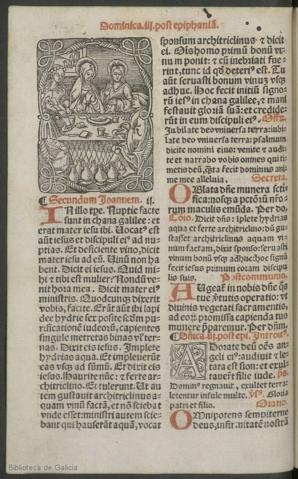 Dominica.iij.post epiphaniã.
¶ Secundum Joannem. ij.
In illo tpe. Nuptie facte
sunt in chana galilee: et
erat mater iesu ibi. Uocatꝰ est
aūt iesus et discipuli eiꝰ ad nu
ptias. Et deficiente vino, dicit
mater iesu ad eũ. Uinũ non ha
bent. Dicit ei iesus. Quid mi-
hi ⁊ tibi est mulier? Nondũ ve-
nit hora mea. Dicit mater eiꝰ
ministris. Quodcunqꝫ dixerit
vobis, facite. Erãt aũt ibi lapi
dee hydrie sex posite scdm pu
rificationẽ iudeorũ, capientes
singule metretas binas vꝉ ter-
nas. Dixit eis iesus. Implete
hydrias aqua. Et impleuerũt
eas vsqꝫ ad sũmũ. Et dixit eis
iesus. Haurite nũc: ⁊ ferte ar-
chitriclino. Et tulerunt. Ut au
tem gustauit architriclinus a-
quam vinũ factã, et nõ sciebat
vnde esset: ministri autem scie
bant qui hauserãt aquã, vocat
sponsum architriclinus: ⁊ dicit
ei. Ois homo primũ bonũ vi-
num ponit: ⁊ cũ inebriati fue-
rint, tunc id qd deteriꝰ est. Tu
aũt seruasti bonum vinuȝ vsqꝫ
adhuc. Hoc fecit initiũ signo-
rũ iesꝰ in chana galilee, ⁊ mani
festauit gloriã suã: et credide-
rũt in eum discipuli eiꝰ. Offer.
Iubilate deo vniuersa terra: iubi-
late deo vniuersa terra: psalmum
dicite nomini eius: venite ⁊ audi-
te et narrabo vobis omnes qui ti-
metis deũ, qñta fecit dominus ani-
me mee alleluia. Secreta.
Oblata dñe munera seti-
fica: nosqꝫ a pctõrũ nrõ-
rum maculis emũda. Per dñ.
Dicit dñs: implete hydrias
aqua et ferte architriclino: dũ gu-
stasset architriclinus aquam vi-
num factam, dixit sponso: seruasti
vinum bonũ vsqꝫ adhuc: hoc signũ
fecit iesus primum coram discipu
lis suis. Postcommunio.
Augeat in nobis dñe qs̃
tue ṽtutis operatio: vt
diuinis vegetati sacramentis,
ad eorũ promissa capienda tuo
munere p̱paremur. Per dñm.
¶ Dñica.iij.post epi. Introit.
Adorate deũ oẽs an-
geli eiꝰ: audiuit ⁊ le-
tata est sion: et exul-
tauerũt filie iude. ps.
Dominꝰ regnauit, exultet terra:
letentur insule multe. Gloria
patri et filio. Oratio
Omnipotens sempiterne
deus, infirmitatẽ nostrã
Biblioteca de Galicia